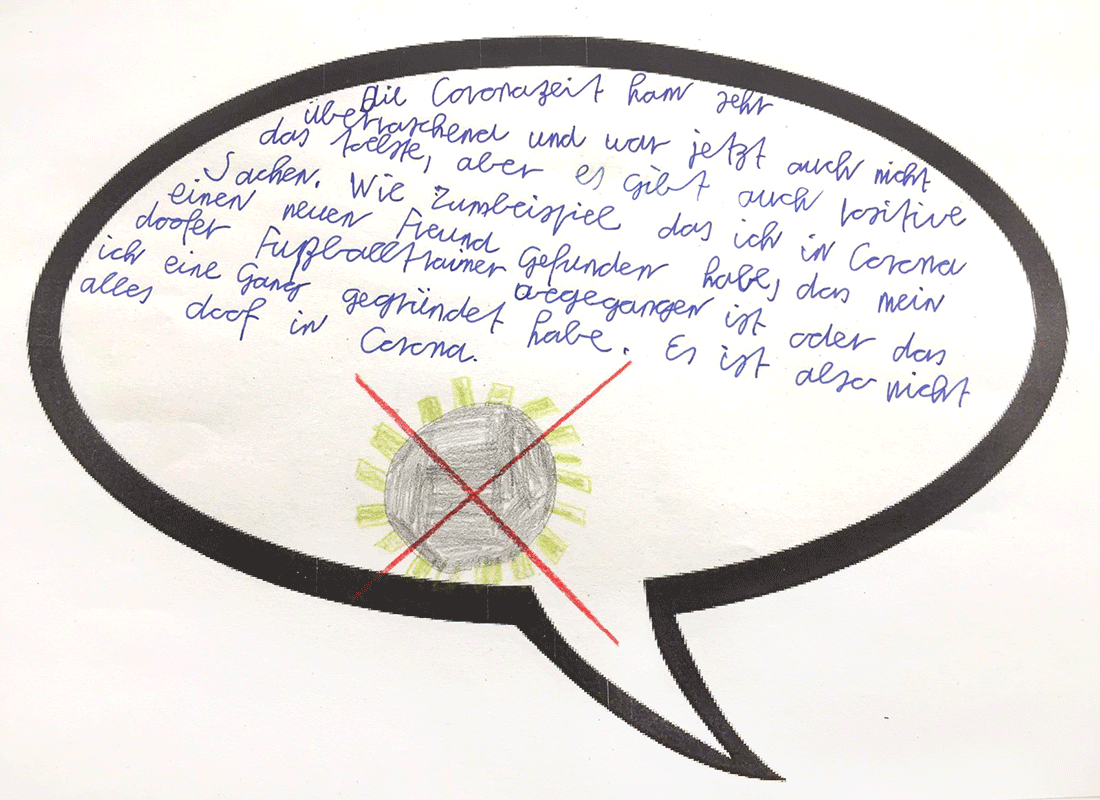 Die Coronazeit kam sehr
überraschend und war jetzt auch nicht
das aber es gibt auch positive
Sachen. Wie Zumbeispiel das ich in Corona
einen neuen Freund gefunden habe, das mein
doofer Fußballtrainer wegegangen ist oder das
ich eine Gang gegründet habe. Es ist also nicht
alles doof in Corona.